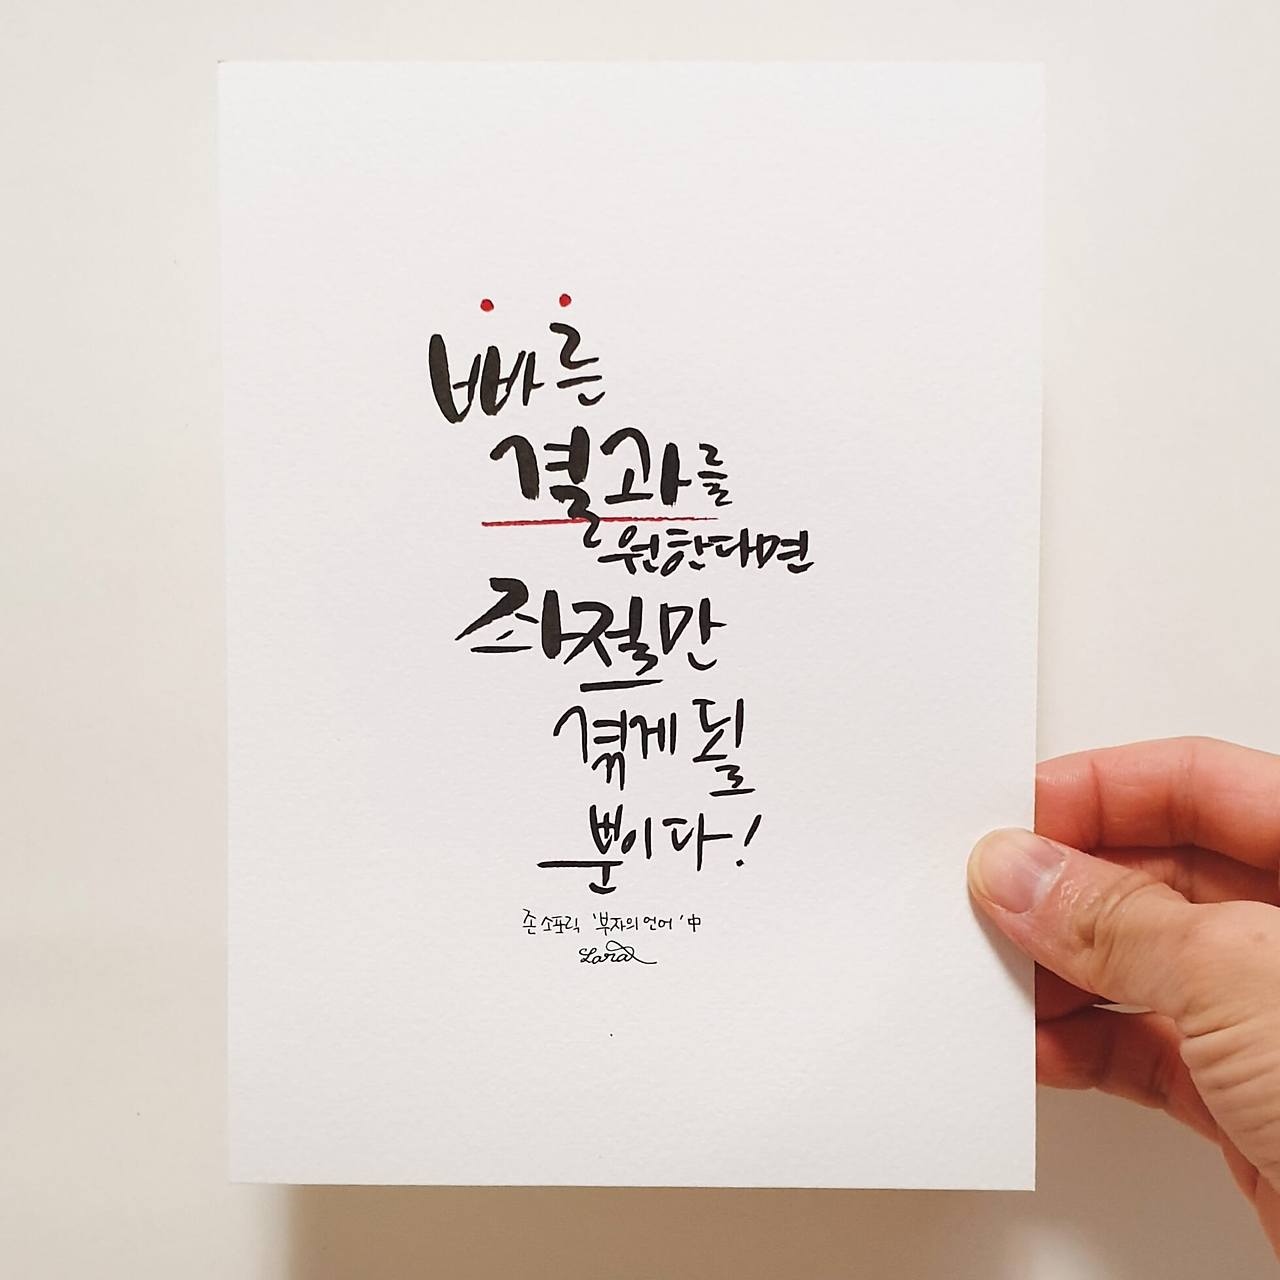 빠른
결과를
원한다면
좌절만
겪게 될
뿐이다!
존 소포릭 '부자의 언어' 中
Lara